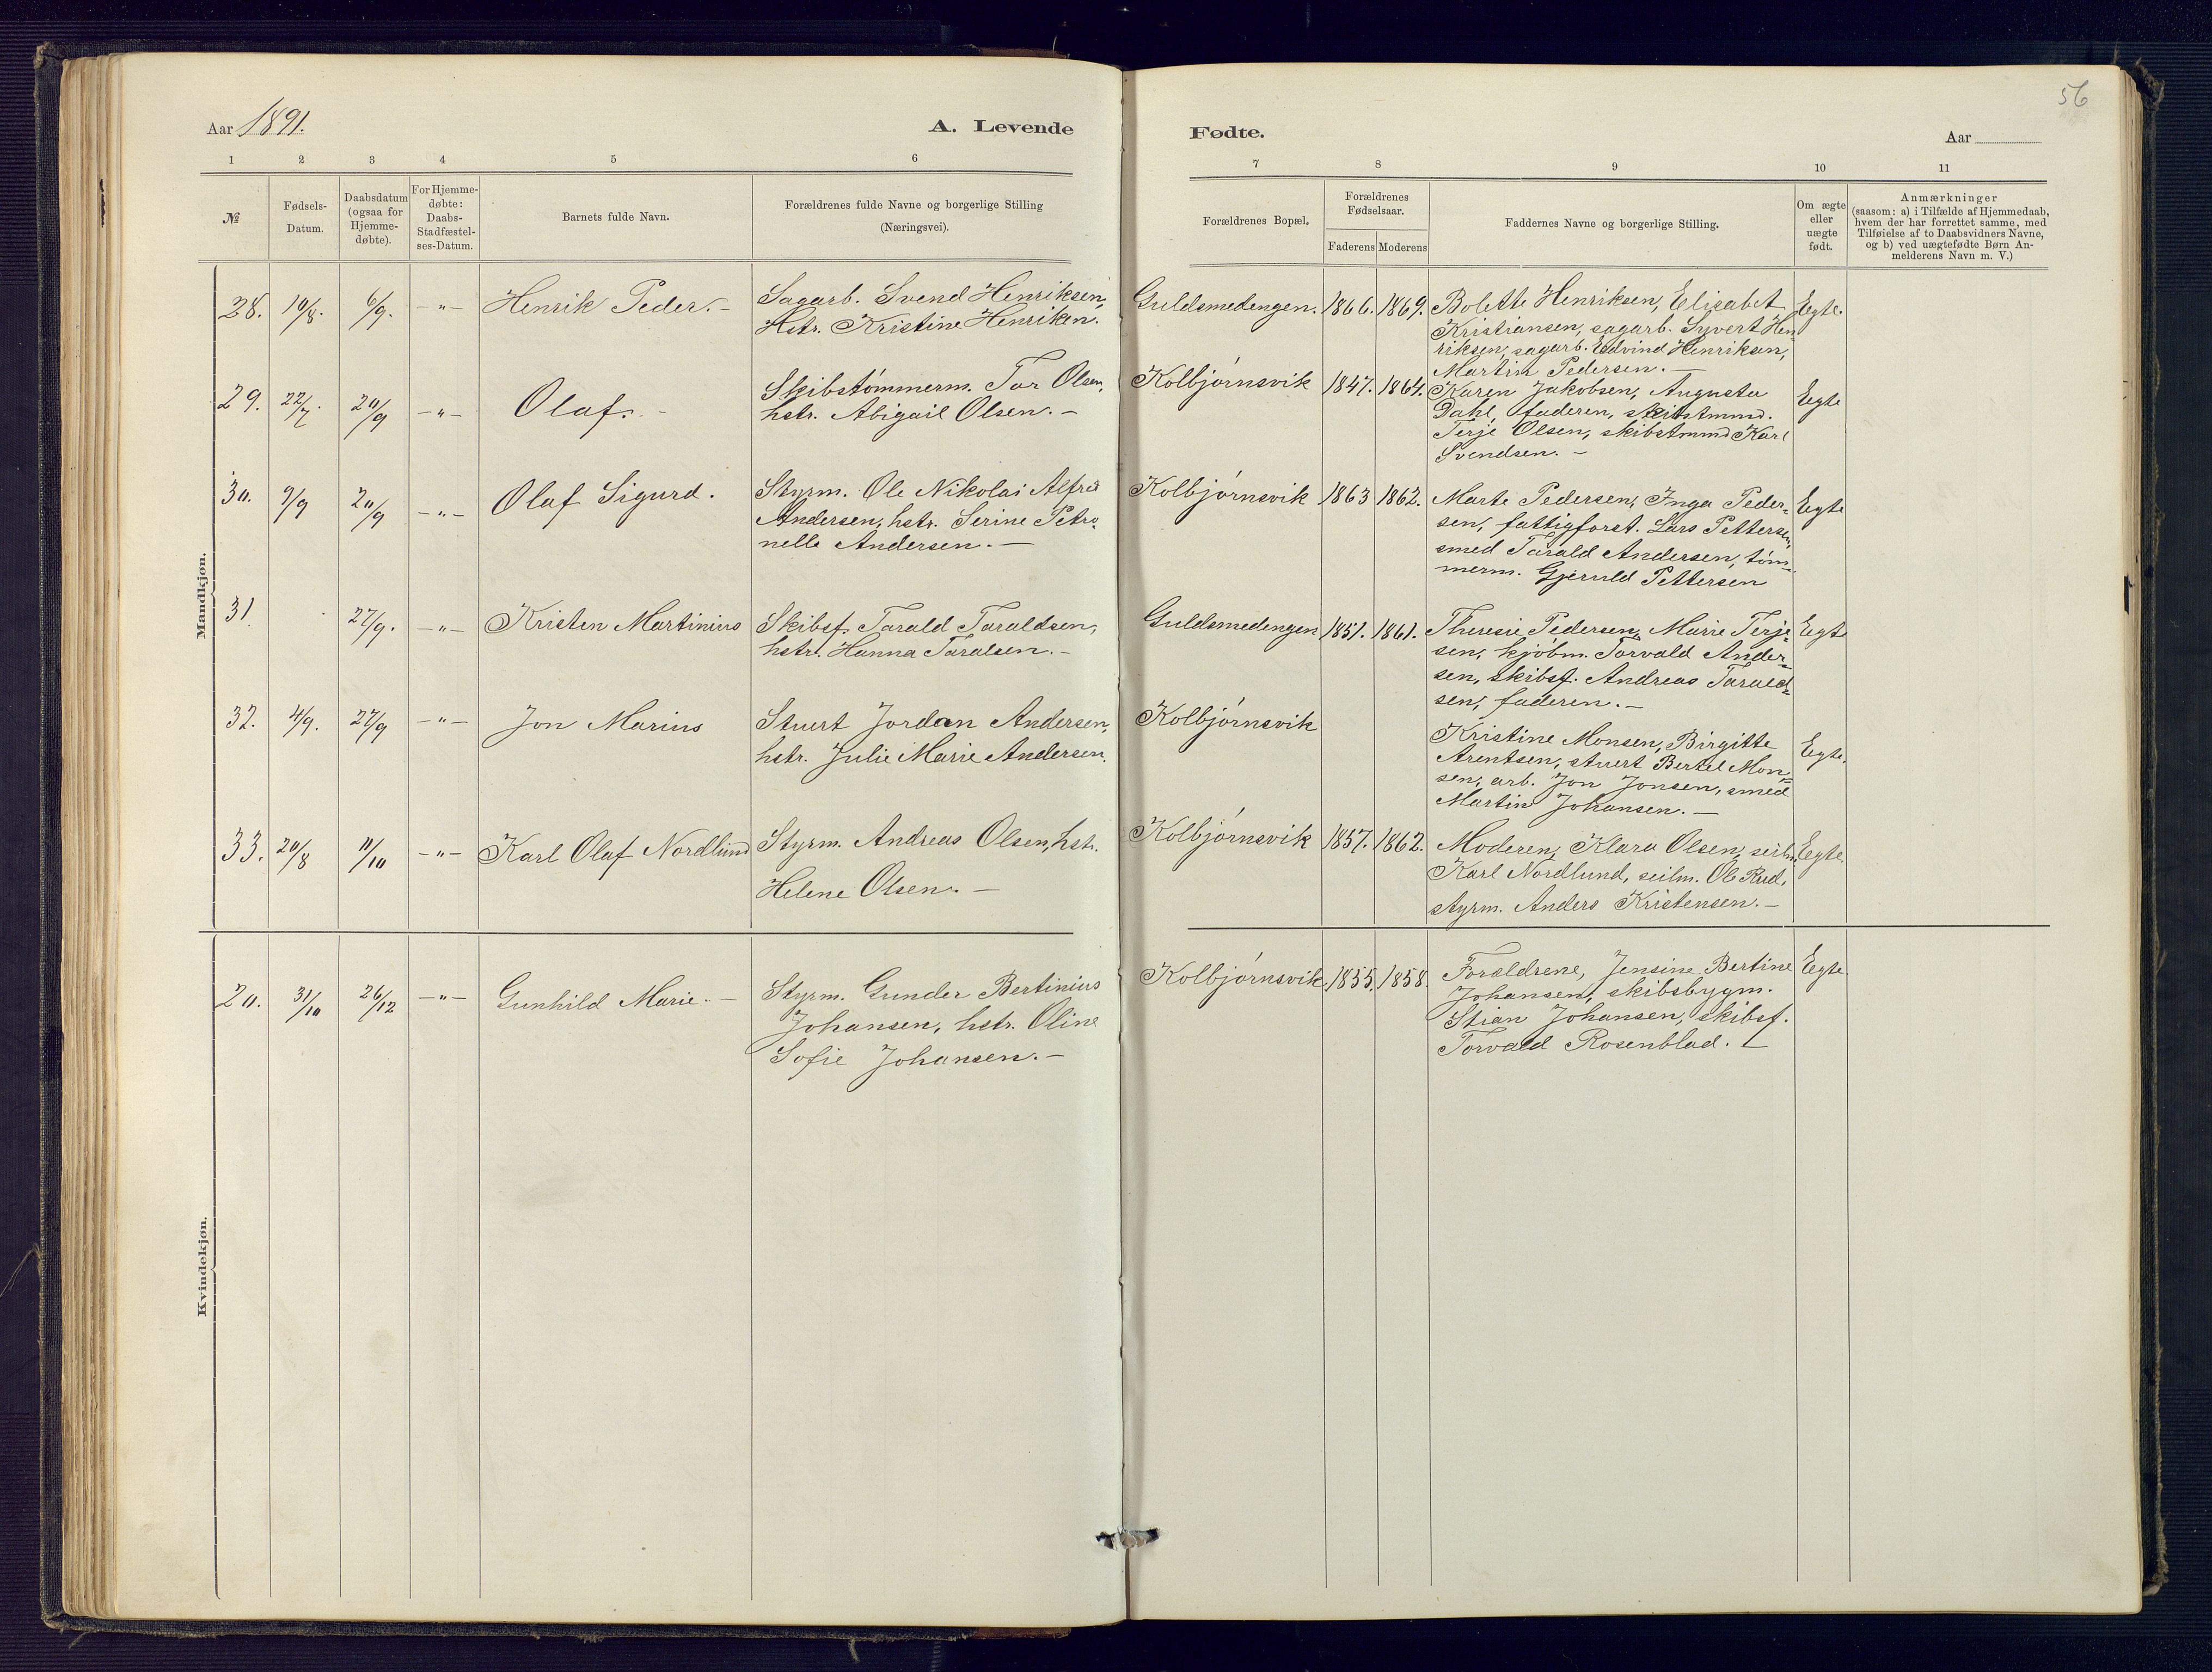 56
Aar 1891.
A. Levende
Fødte.
Aar
1 2 3 4 5 6
7 8 9 10 11
№
Fødsels-
Datum.
Daabsdatum
(ogsaa for
Hjemme-
døbte).
For Hjemme-
døbte:
Daabs-
Stadfæstel-
ses-Datum.
Barnets fulde Navn.
Forældrenes fulde Navne og borgerlige Stilling
(Næringsvei).
Forældrenes Bopæl.
Forældrenes
Fødselsaar.
Faderens Moderens
Faddernes Navne og borgerlige Stilling.
Om ægte
eller
uægte
født.
Anmærkninger
(saasom: a) i Tilfælde af Hjemmedaab,
hvem der har forrettet samme, med
Tilføielse af to Daabsvidners Navne,
og b) ved uægtefødte Børn An-
melderens Navn m. V.)
Mandkjøn.
28. 10/8. 6/9. -„- Henrik Peder. -
Sagarb. Svend Henriksen,
Hstr. Kristine Henriken.
Guldsmedengen. 1866. 1869.
Bolette Henriksen, Elisabet
Kristiansen, sagarb. Syvert Hen
riksen, sagarb. Edvind Henriksen,
Martin Pedersen. -
Egte.
29. 22/7. 20/9 -„- Olaf. -
Skibstømmerm. Tor Olsen,
hstr. Abigail Olsen. -
Kolbjørnsvik 1847. 1864.
Karen Jakobsen, Augusta
Dahl, faderen, skibstmmd.
Terje Olsen, skibstmmd Karl
Svendsen. -
Egte
30. 9/9 20/9 -„- Olaf Sigurd.
Styrm. Ole Nikolai Alfred
Andersen, hstr. Serine Petro-
nelle Andersen. -
Kolbjørnsvik 1863 1862.
Marte Pedersen, Inga Peder-
sen, fattigforst. Lars Pettersen,
smed Tarald Andersen, tøm-
merm. Gjeruld Pettersen
Egte
31. 27/9. -„- Kristen Martinius
Skibsf. Tarald Taraldsen,
hstr. Hanna Taralsen. -
Guldsmedengen 1851. 1861.
Theresie Pedersen, Marie Terje-
sen, kjøbm. Torvald Ander-
sen, skibsf. Andreas Tarald-
sen, faderen. -
Egte
32. 4/9. 27/9 -„- Jon Marius
Stuert Jordan Andersen,
hstr. Julie Marie Andersen.
Kolbjørnsvik
Kristine Monsen, Birgitte
Arentsen, stuert Bertel Mon-
sen, arb. Jon Jonsen, smed
Martin Johansen. -
Egte.
33. 20/8 11/10 -„- Karl Olaf Nordlund
Styrm. Andreas Olsen, hstr.
Helene Olsen. -
Kolbjørnsvik 1857. 1862.
Moderen, Klara Olsen, seilm.
Karl Nordlund, seilm. Ole Rud,
styrm. Anders Kristensen. -
Egte.
Kvindekjøn.
20. 31/10 26/12 -„- Gunhild Marie. -
Styrm. Gunder Bertinius
Johansen, hstr. Oline
Sofie Johansen. -
Kolbjørnsvik. 1855. 1858.
Forældrene, Jensine Bertine
Johansen, skibsbygm.
Stian Johansen, skibsf.
Torvald Rosenblad. -
Egte.